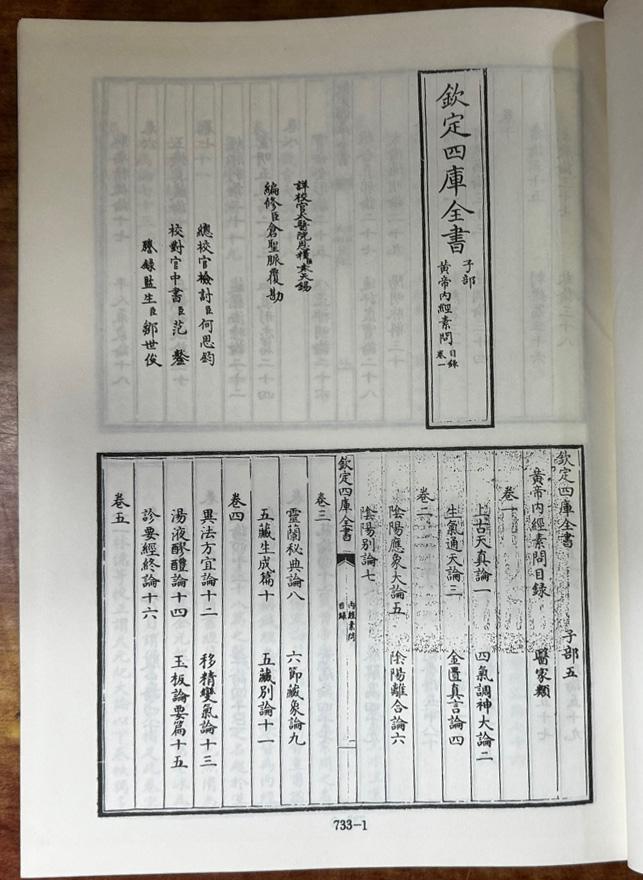 欽定四庫全書
子部
黃帝內經素問
目錄
卷一
詳校官太醫院恩糧臣袁天錫
編修臣倉聖脈覆勘
總校官檢討臣何思鈞
校對官中書臣范鏊
謄錄監生臣鄒世俊
欽定四庫全書 子部五
黃帝內經素問目錄 醫家類
卷一
上古天真論一 四氣調神大論二
生氣通天論三 金匱真言論四
卷二
陰陽應象大論五 陰陽離合論六
陰陽別論七
欽定四庫全書
內經素問
目錄
一
卷三
靈蘭秘典論八 六節藏象論九
五藏生成篇十 五藏別論十一
卷四
異法方宜論十二 移精變氣論十三
湯液醪醴論十四 玉板論要篇十五
診要經終論十六
卷五
733-1